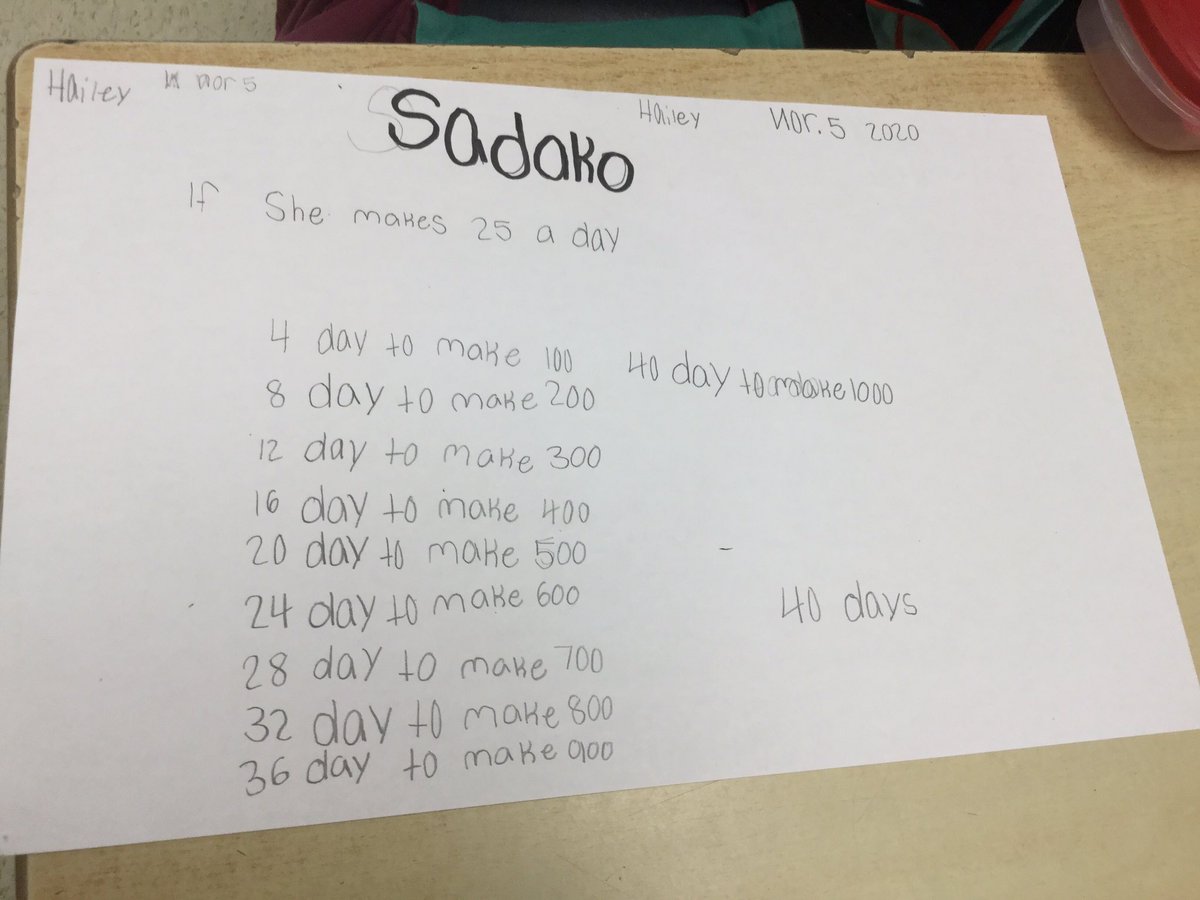 Hailey nor 5 Hailey Nor. 5 2020
Sadako
If She makes 25 a day
4 day to make 100
8 day to make 200
12 day to make 300
16 day to make 400
20 day to make 500
24 day to make 600
28 day to make 700
32 day to make 800
36 day to make 900
40 day to make 1000
40 days